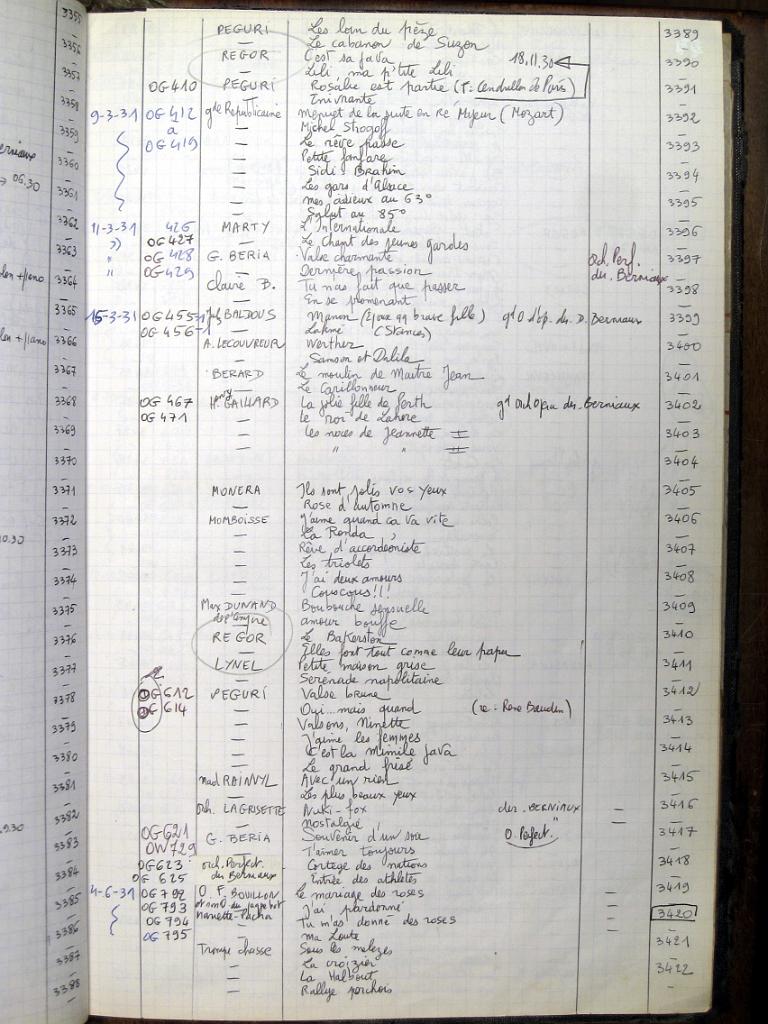 3389
PEGURI Les loin du pièze
— Le cabanon de Suzon
REGOR C'est sa java 18.11.30 3390
— Lili ma p'tite Lili —
OG410 PEGURI Rosalie est partie (F: Cendrillon de Paris) 3391
— Enivrante —
9-3-31 OG412 gde Républicaine menuet de la suite en Ré Majeur (Mozart) 3392
a — Michel Strogoff —
OG419 — Le rêve passe 3393
— Petite fanfare —
— Sidi Brahim 3394
— Les gars d'Alsace —
— mes adieux au 63° 3395
— Salut au 85° —
11-3-31 426 MARTY L'Internationale 3396
" OG427 — Le Chant des jeunes gardes —
" OG 428 G. BERIA Valse charmante Orch. Perf. 3397
" OG429 — Dernière passion du. Berniaux —
Claire B. Tu n'as fait que passer 3398
— En se promenant —
15-3-31 OG455-1 BALDOUS Manon (Epouse qq brave fille) gd O d'op. dir. D. Berniaux 3399
OG 456-1 — Lakmé (Stances) —
A. LECOUVREUR Werther 3400
— Samson et Dalila —
BERARD Le moulin de Maitre Jean 3401
— Le Carillonneur —
OG 467 Henry GAILLARD La jolie fille de Perth gd Orch Opera dir. Berniaux 3402
OG 471 — Le roi de Lahore —
— Les noces de Jeannette I 3403
— " " II —
3404
—
MONERA Ils sont jolis vos yeux 3405
— Rose d'automne —
MOMBOISSE J'aime quand ça va vite 3406
— La Ronda —
— Rêve d'accordéoniste 3407
— Les triolets —
— J'ai deux amours 3408
— Couscous!!! —
Max DUNAND Boubouche sensuelle 3409
de l'Empire amour bouffe —
REGOR Le Bakerston 3410
— Elles font tout comme leur papa —
LYNEL Petite maison grise 3411
— Serenade napolitaine —
OG612 PEGURI Valse brune 3412
OG 614 — Oui... mais quand (re: René Baudin) —
— Valsons, Ninette 3413
— J'aime les femmes —
— C'est la Mimile java 3414
— Le grand frisé —
mad RAINVYL Avec un rien 3415
— Les plus beaux yeux —
Orch. LAGRISETTE Nuki-fox dir. BERNIAUX — 3416
— nostalgie " — —
OG621 G. BERIA Souvenir d'un soir O. Perfect. 3417
OW729 T'aimer toujours —
OG623 orch. Perfect. Cortège des nations 3418
OG 625 du Berniaux Entrée des athlètes —
4-6-31 OG792 O F. BOUILLON Le mariage des roses — 3419
OG793 J'ai pardonné — —
OG 794 Nanette-Pacha Tu m'as donné des roses — 3420
OG 795 ma Loute —
Trompe chasse Sous les melezes 3421
— La croizier —
— La Halbout 3422
— Rallye perchois —
3355
—
3356
—
3357
—
3358
—
3359
—
3360
—
3361
—
3362
—
3363
—
3364
—
3365
—
3366
—
3367
—
3368
—
3369
—
3370
—
3371
—
3372
—
3373
—
3374
—
3375
—
3376
—
3377
—
3378
—
3379
—
3380
—
3381
—
3382
—
3383
—
3384
—
3385
—
3386
—
3387
—
3388